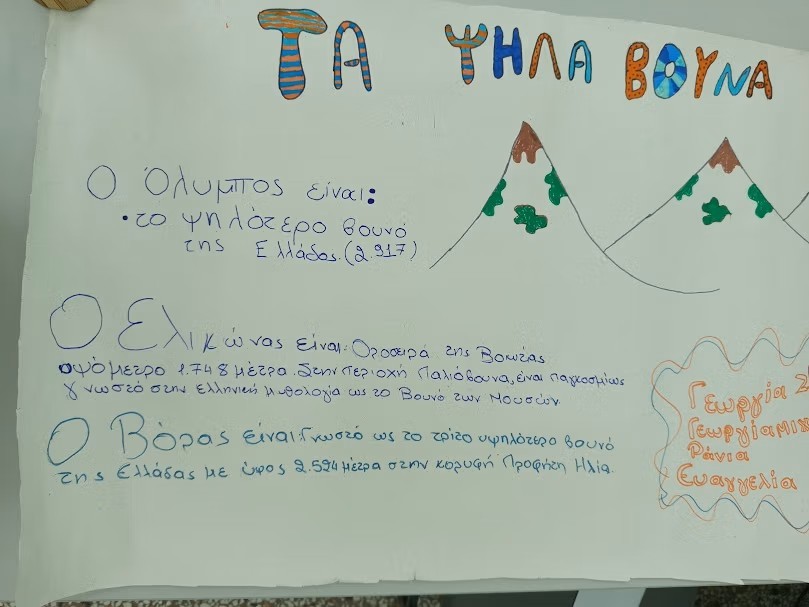 ΤΑ ΨΗΛΑ ΒΟΥΝΑ
Ο Όλυμπος είναι:
• το ψηλότερο βουνό
της Ελλάδας. (2.917)
Ο Ελικώνας είναι: Οροσειρά της Βοιωτίας
οψόμετρο 1.748 μέτρα. Στην περιοχή Παλιόβουνα, είναι παγκοσμίως
γνωστό στην ελληνική μυθολογία ως το Βουνό των Μουσών.
Ο Βόρας είναι: Γνωστό ως το τρίτο υψηλότερο βουνό
της Ελλάδας με ύψος 2.524 μέτρα στην κορυφή Προφήτη Ηλία.
Γεωργία
Γεωργία Μιχ
Ράνια
Ευαγγελία